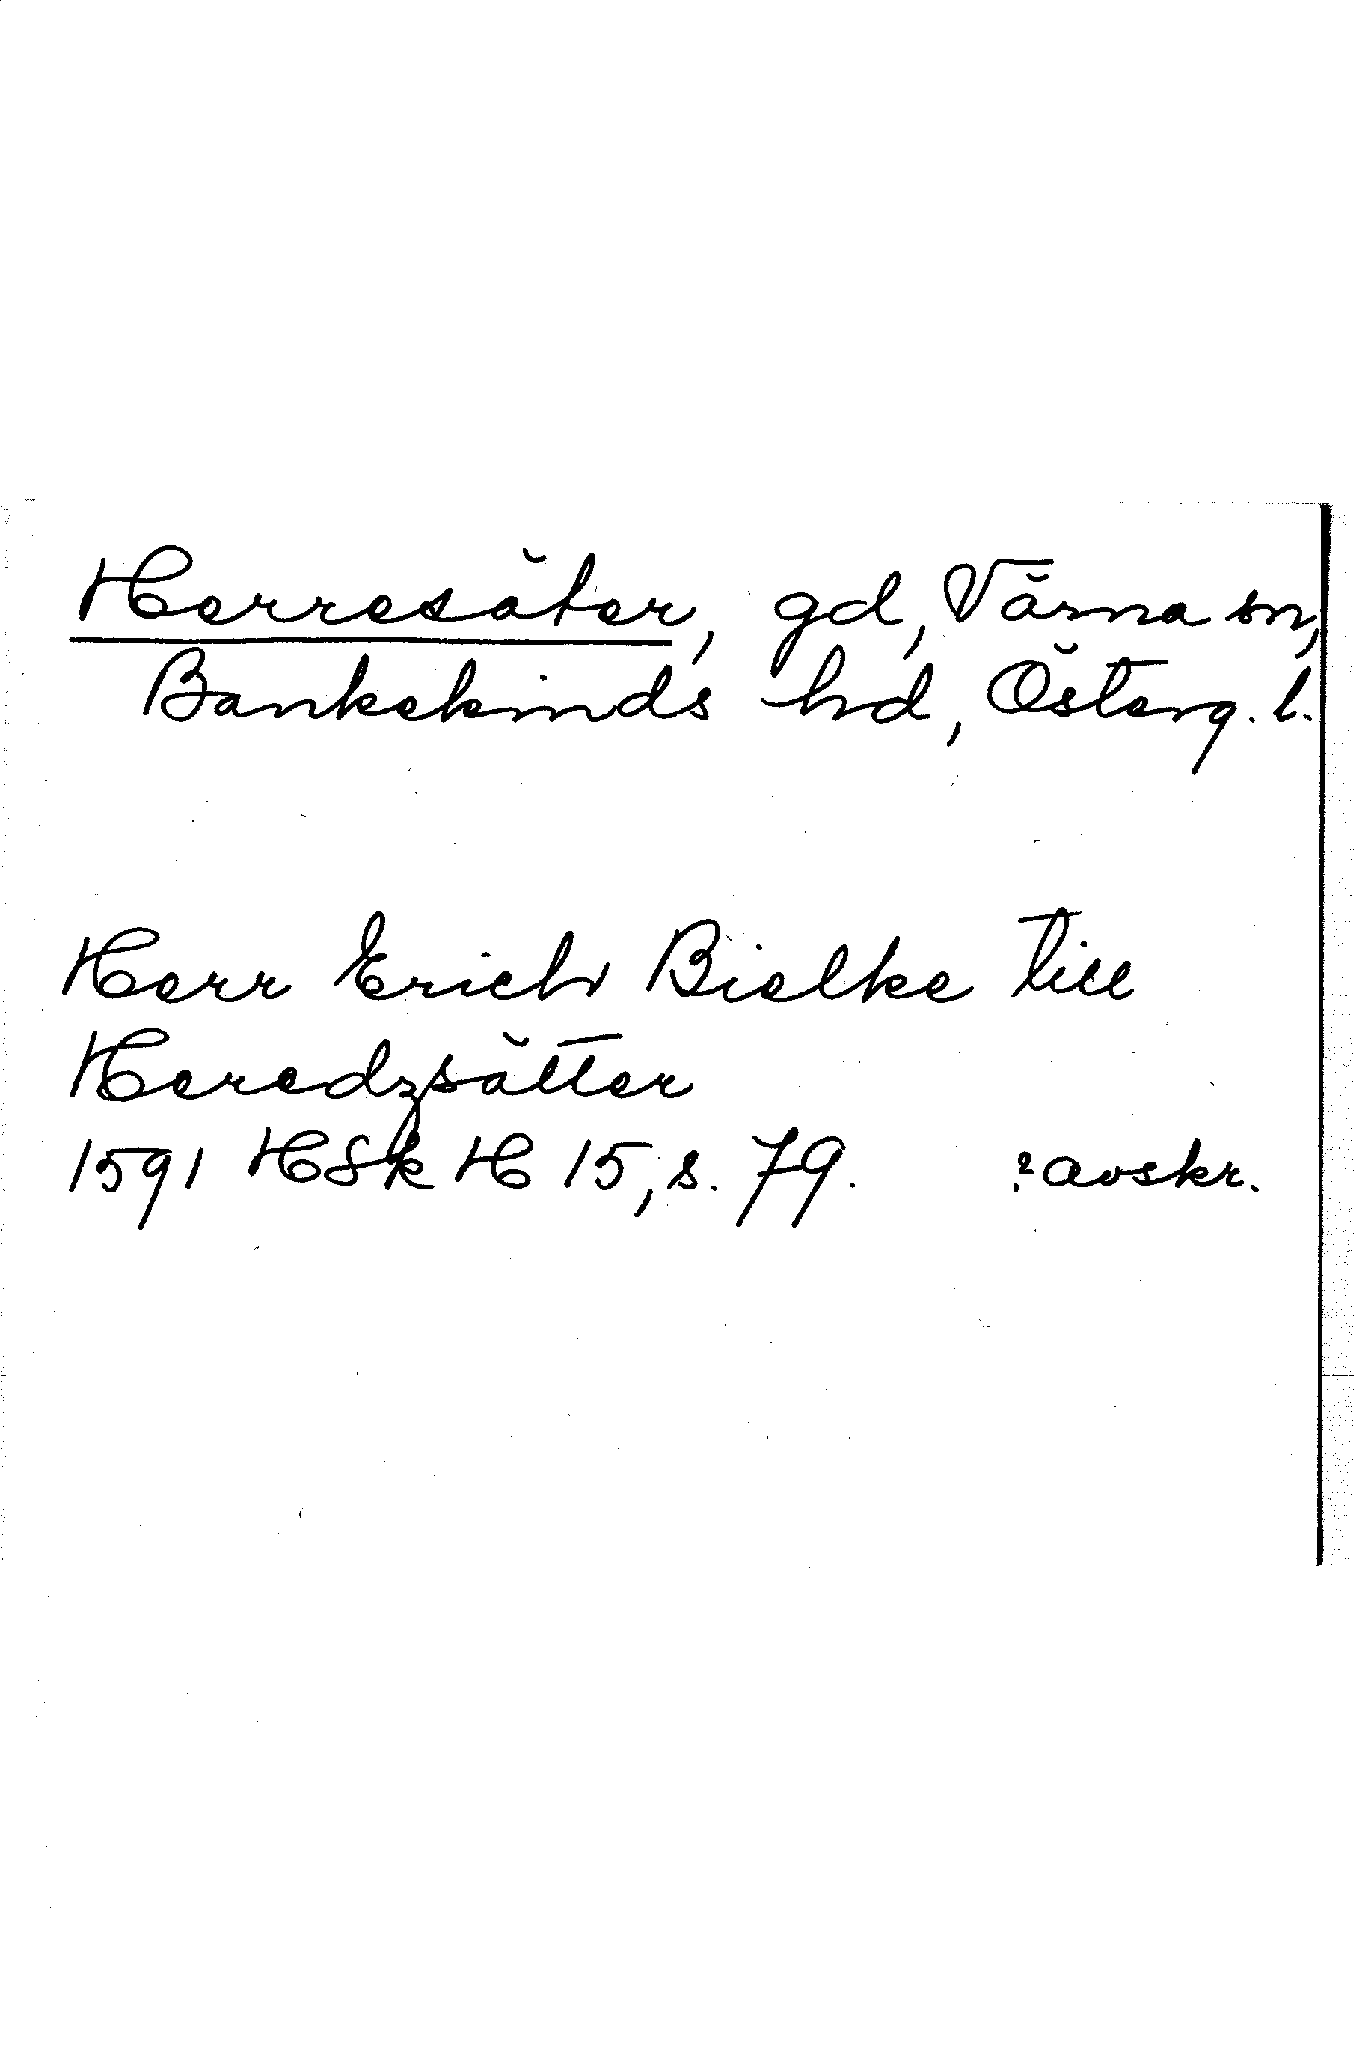 Herresäter, gd, Värna sn,
Bankekinds hd, Österg. l.
Herr Erich Bielke till
Heredzsätter
1591 HSk H 15, s. 79. ? avskr.